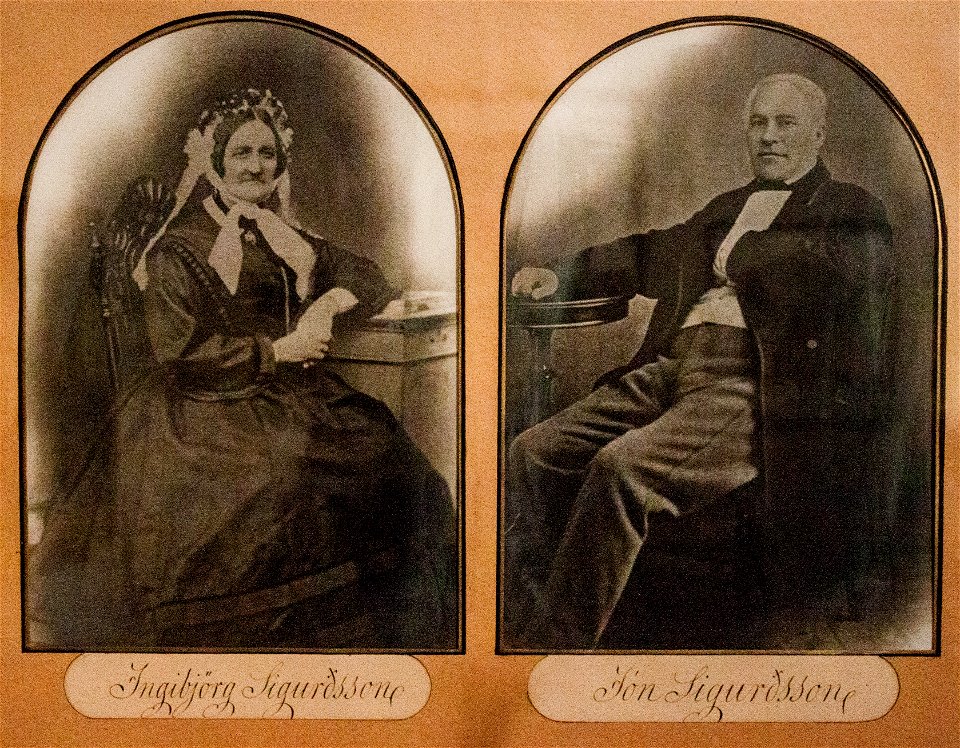 Ingibjörg Sigurðsson
Jón Sigurðsson